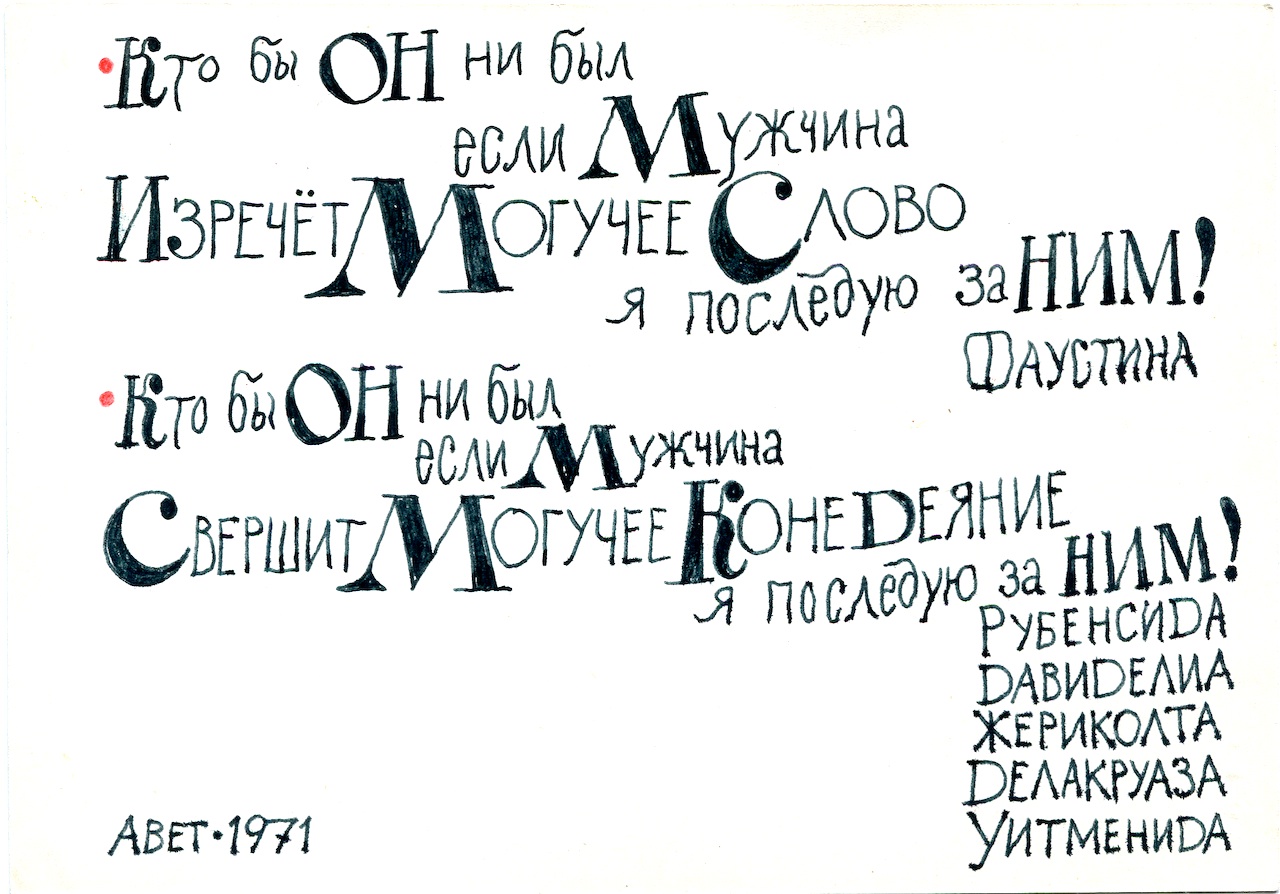 • Кто бы ОН ни был
если Мужчина
ИЗРЕЧЁТ МОГУЧЕЕ СЛОВО
я последую за НИМ!
ФАУСТИНА
• Кто бы ОН ни был
если Мужчина
СВЕРШИТ МОГУЧЕЕ КОНЕДЕЯНИЕ
я последую за НИМ!
РУБЕНСИДА
ДАВИДЕЛИА
ЖЕРИКОЛТА
ДЕЛАКРУАЗА
УИТМЕНИДА
АВЕТ • 1971